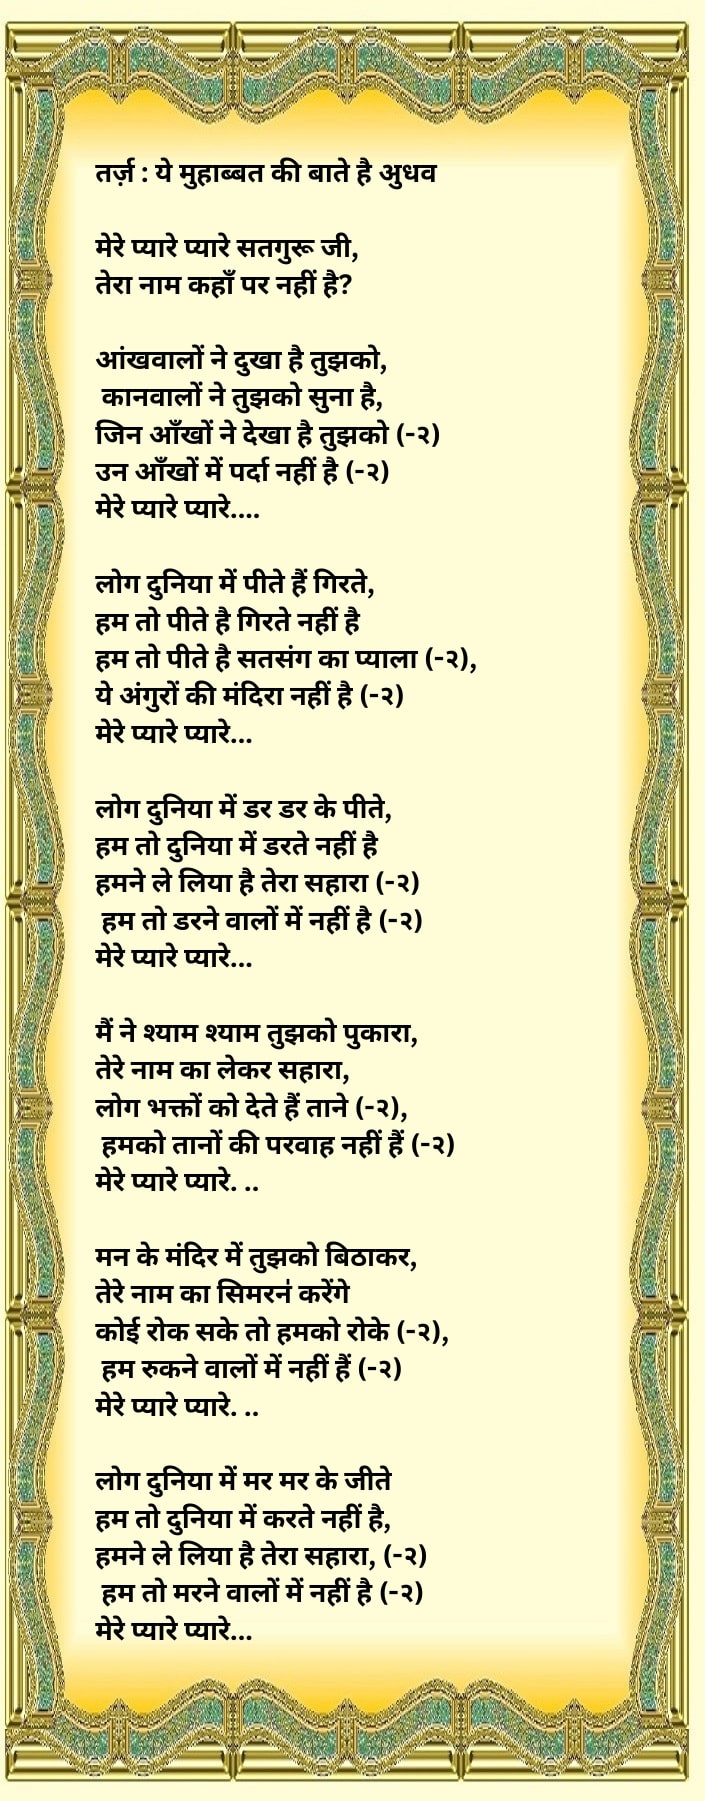 तर्ज़ : ये मुहाब्बत की बाते है अुधव
मेरे प्यारे प्यारे सतगुरू जी,
तेरा नाम कहाँ पर नहीं है?
आंखवालों ने दुखा है तुझको,
कानवालों ने तुझको सुना है,
जिन आँखों ने देखा है तुझको (-२)
उन आँखों में पर्दा नहीं है (-२)
मेरे प्यारे प्यारे....
लोग दुनिया में पीते हैं गिरते,
हम तो पीते है गिरते नहीं है
हम तो पीते है सतसंग का प्याला (-२),
ये अंगुरों की मंदिरा नहीं है (-२)
मेरे प्यारे प्यारे...
लोग दुनिया में डर डर के पीते,
हम तो दुनिया में डरते नहीं है
हमने ले लिया है तेरा सहारा (-२)
हम तो डरने वालों में नहीं है (-२)
मेरे प्यारे प्यारे...
मैं ने श्याम श्याम तुझको पुकारा,
तेरे नाम का लेकर सहारा,
लोग भक्तों को देते हैं ताने (-२),
हमको तानों की परवाह नहीं हैं (-२)
मेरे प्यारे प्यारे. ..
मन के मंदिर में तुझको बिठाकर,
तेरे नाम का सिमरनं करेंगे
कोई रोक सके तो हमको रोके (-२),
हम रुकने वालों में नहीं हैं (-२)
मेरे प्यारे प्यारे. ..
लोग दुनिया में मर मर के जीते
हम तो दुनिया में करते नहीं है,
हमने ले लिया है तेरा सहारा, (-२)
हम तो मरने वालों में नहीं है (-२)
मेरे प्यारे प्यारे...